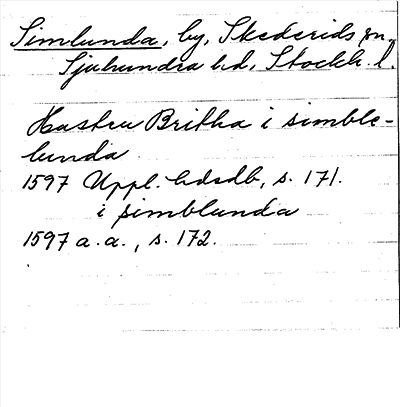 Simlunda, by, Skederids sn.,
Sjuhundra hd, Stockh. l.
Hustru Britha i simble-
lunda
1597 Uppl. hdsdb, s. 171.
i simblunda
1597 a. a., s. 172.